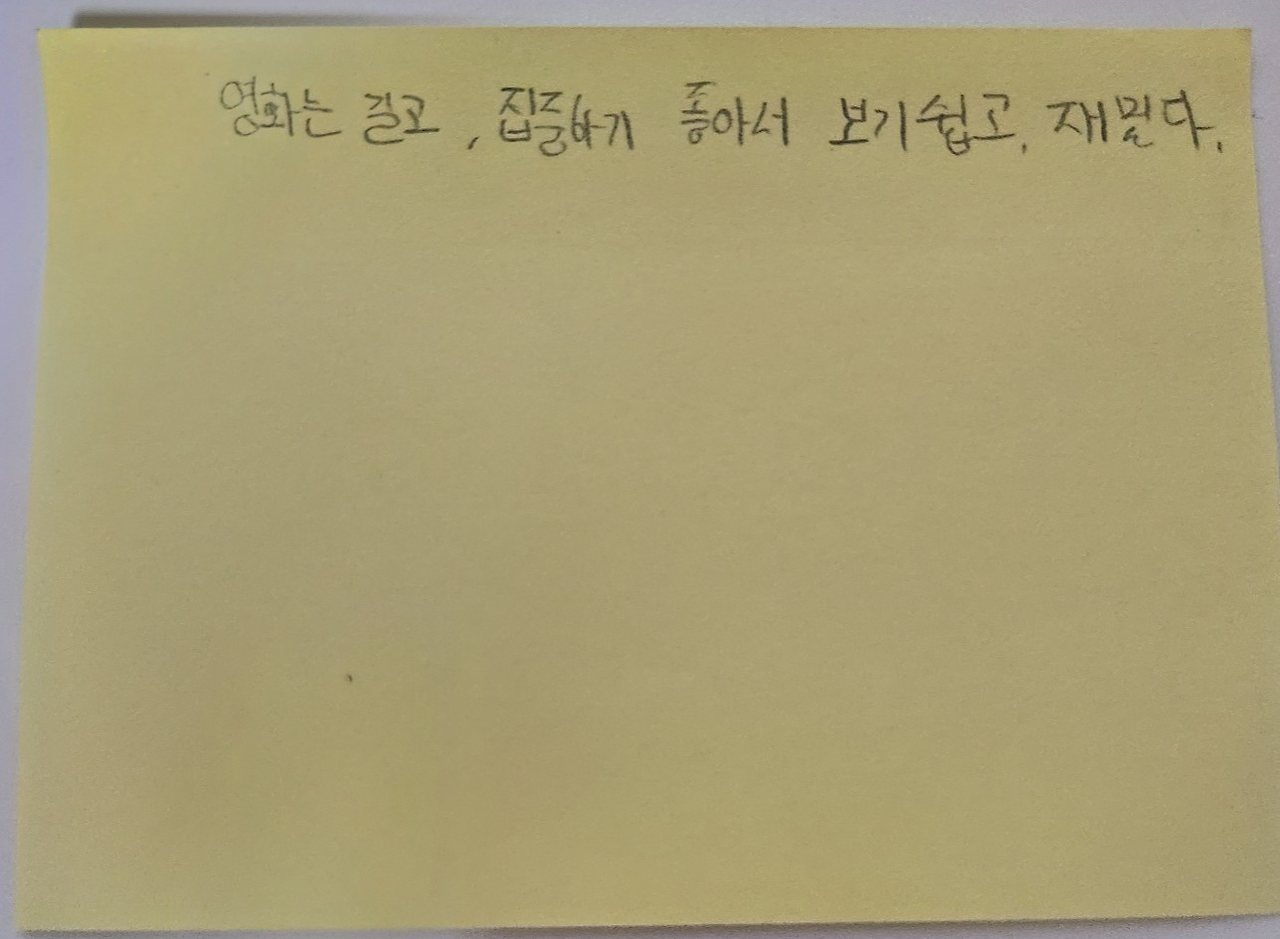 영화는 길고, 집중하기 좋아서 보기쉽고, 재밌다.